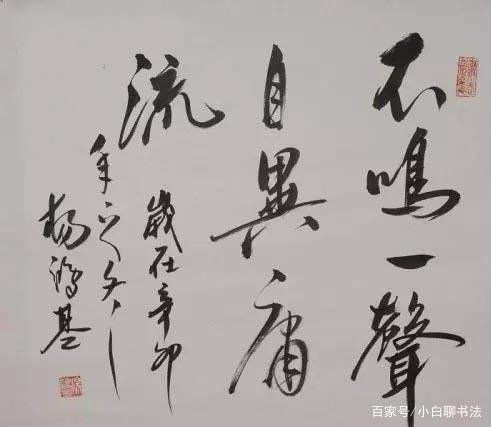 不鳴一聲
自異庸
流
歲在辛卯
年之
楊鴻基
百家号/小白聊书法